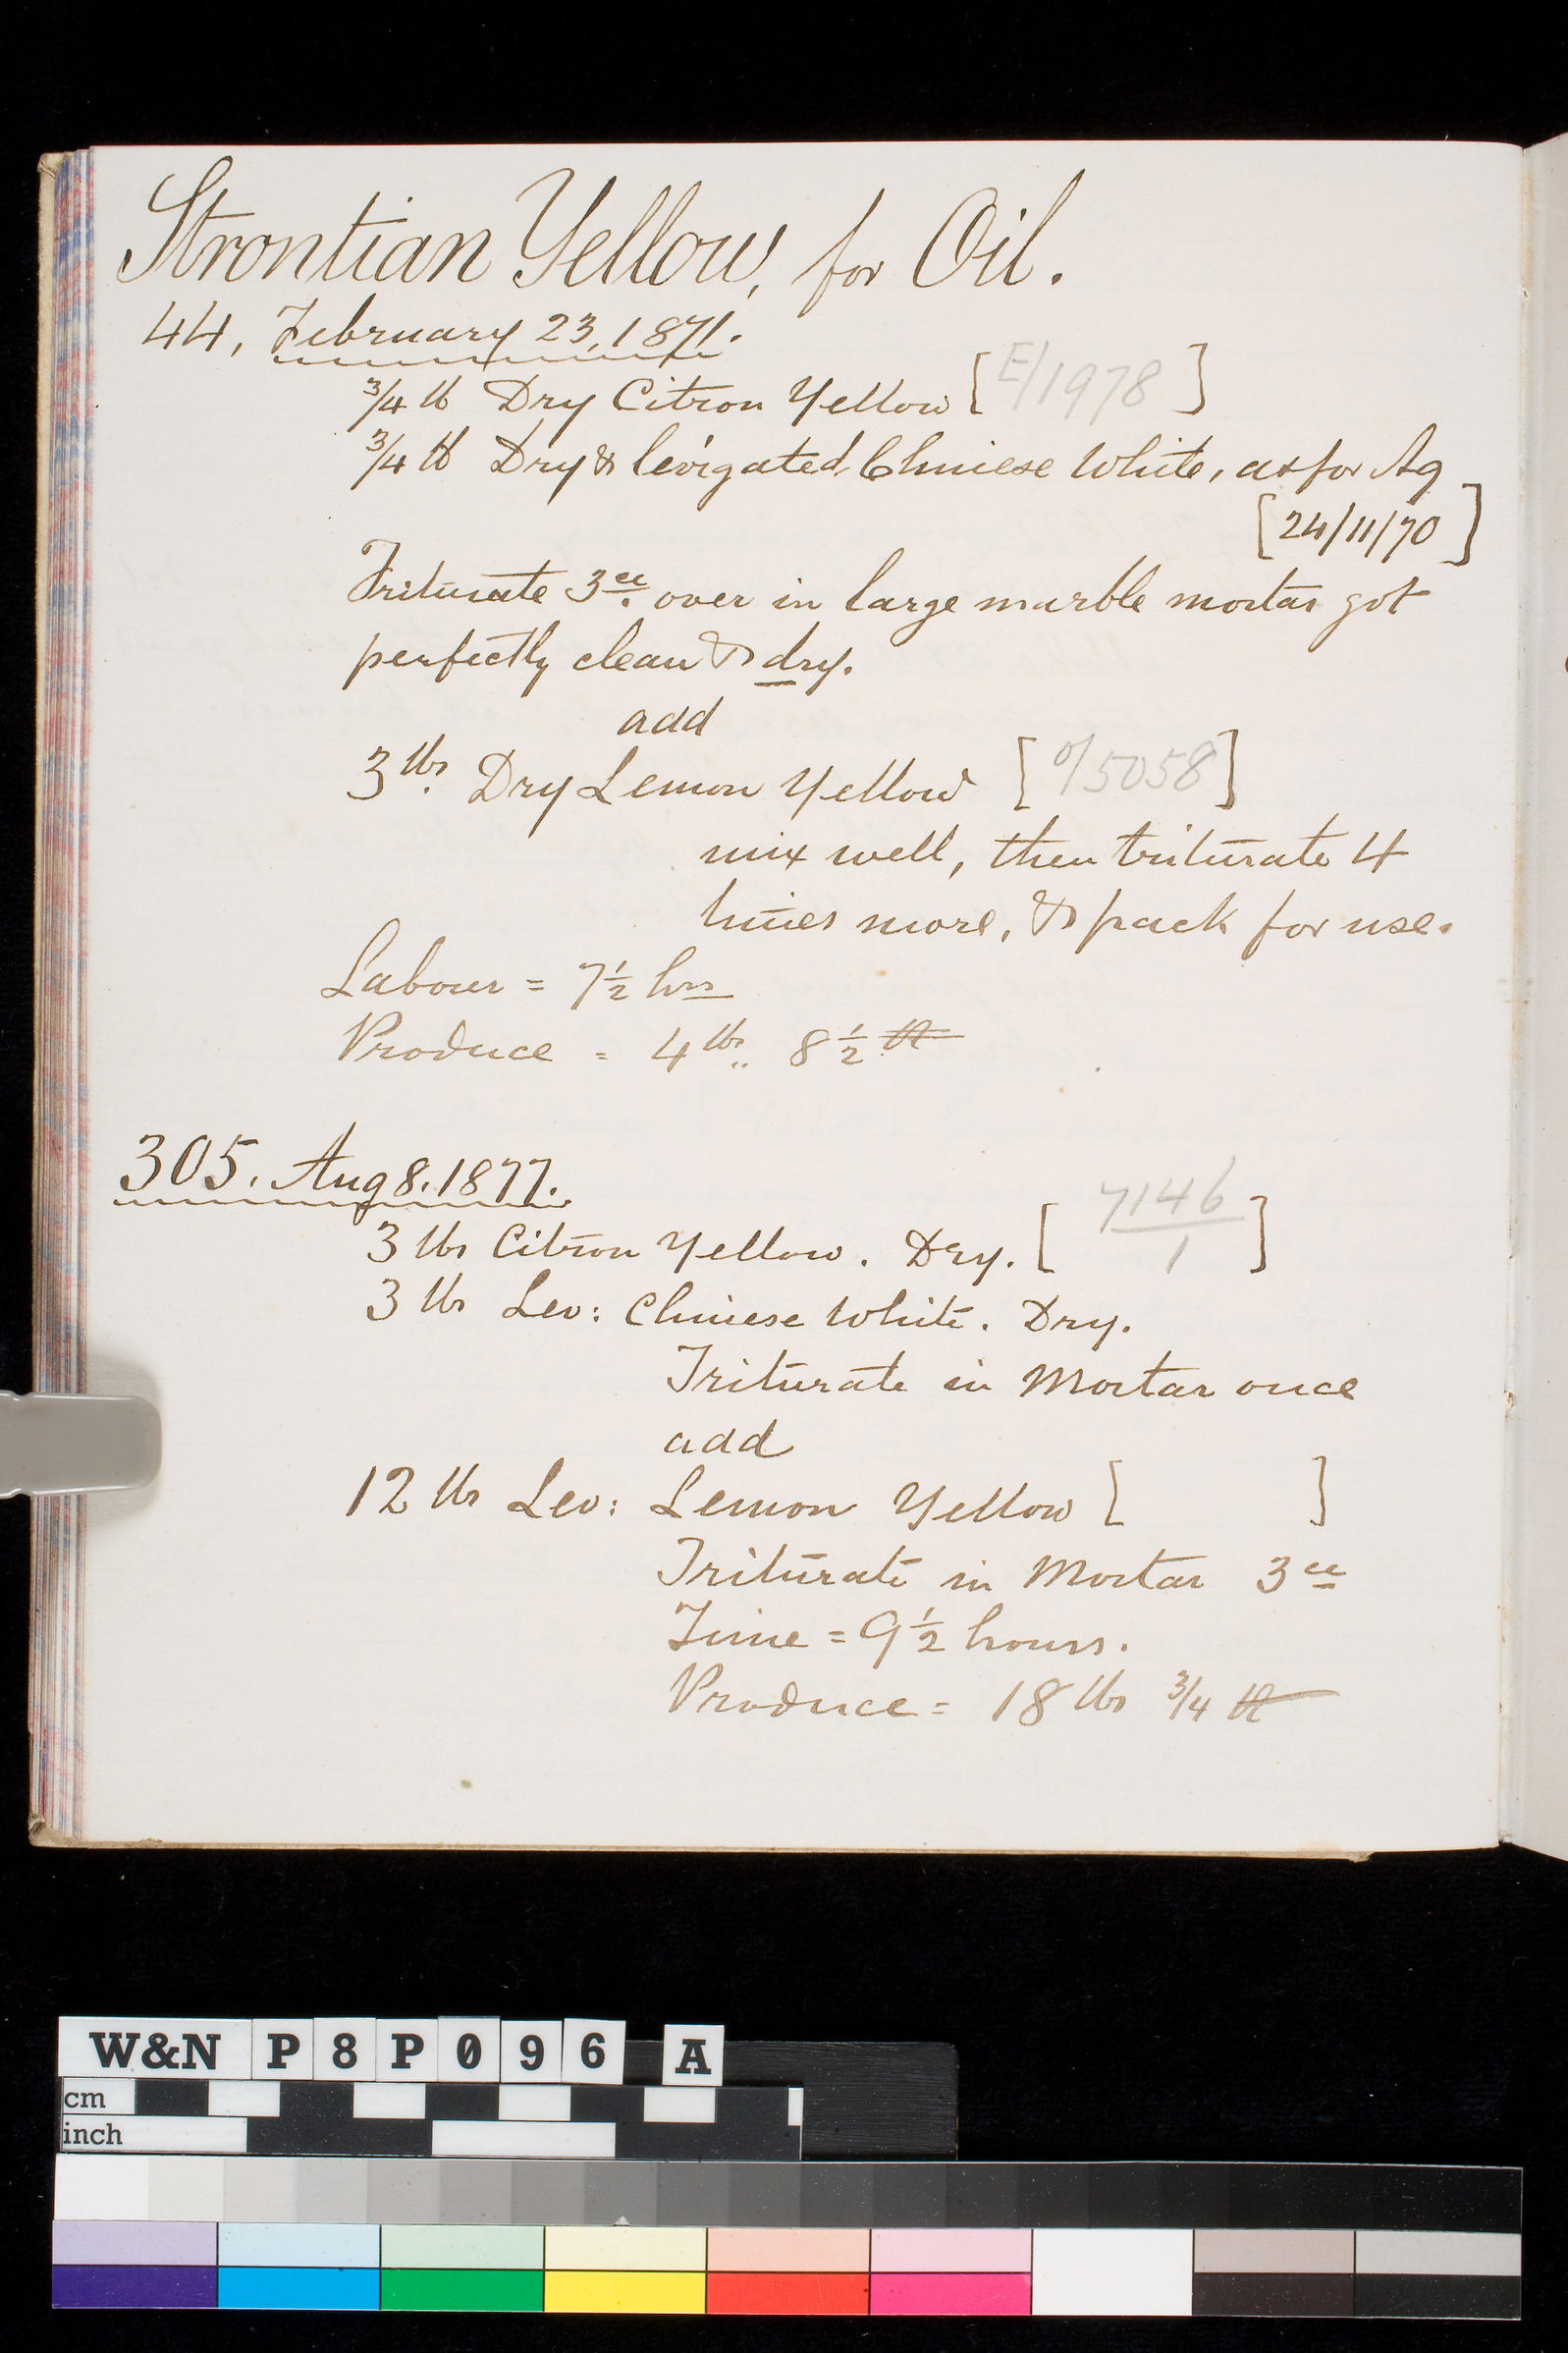 Strontian Yellow, for Oil.
44, February 23, 1871.
3/4 lb Dry Citron Yellow [E/1978]
3/4 lb Dry & levigated Chinese White, as for Aq
[24/11/70]
Triturate 3ce. over in large marble mortar got
perfectly clean & dry.
add
3 lbs. Dry Lemon Yellow [o/5058]
mix well, then triturate 4
times more, & pack for use.
Labour = 7 1/2 hrs
Produce = 4 lbs.. 8 1/2
305. Aug 8. 1877.
3 lbs Citron Yellow. Dry. [7146/1]
3 lbs Lev: Chinese White. Dry.
Triturate in Mortar once
add
12 lbs Lev: Lemon Yellow [ ]
Triturate in Mortar 3ce
Time = 9 1/2 hours.
Produce = 18 lbs 3/4 lb
W&N P8P096 A
cm
inch